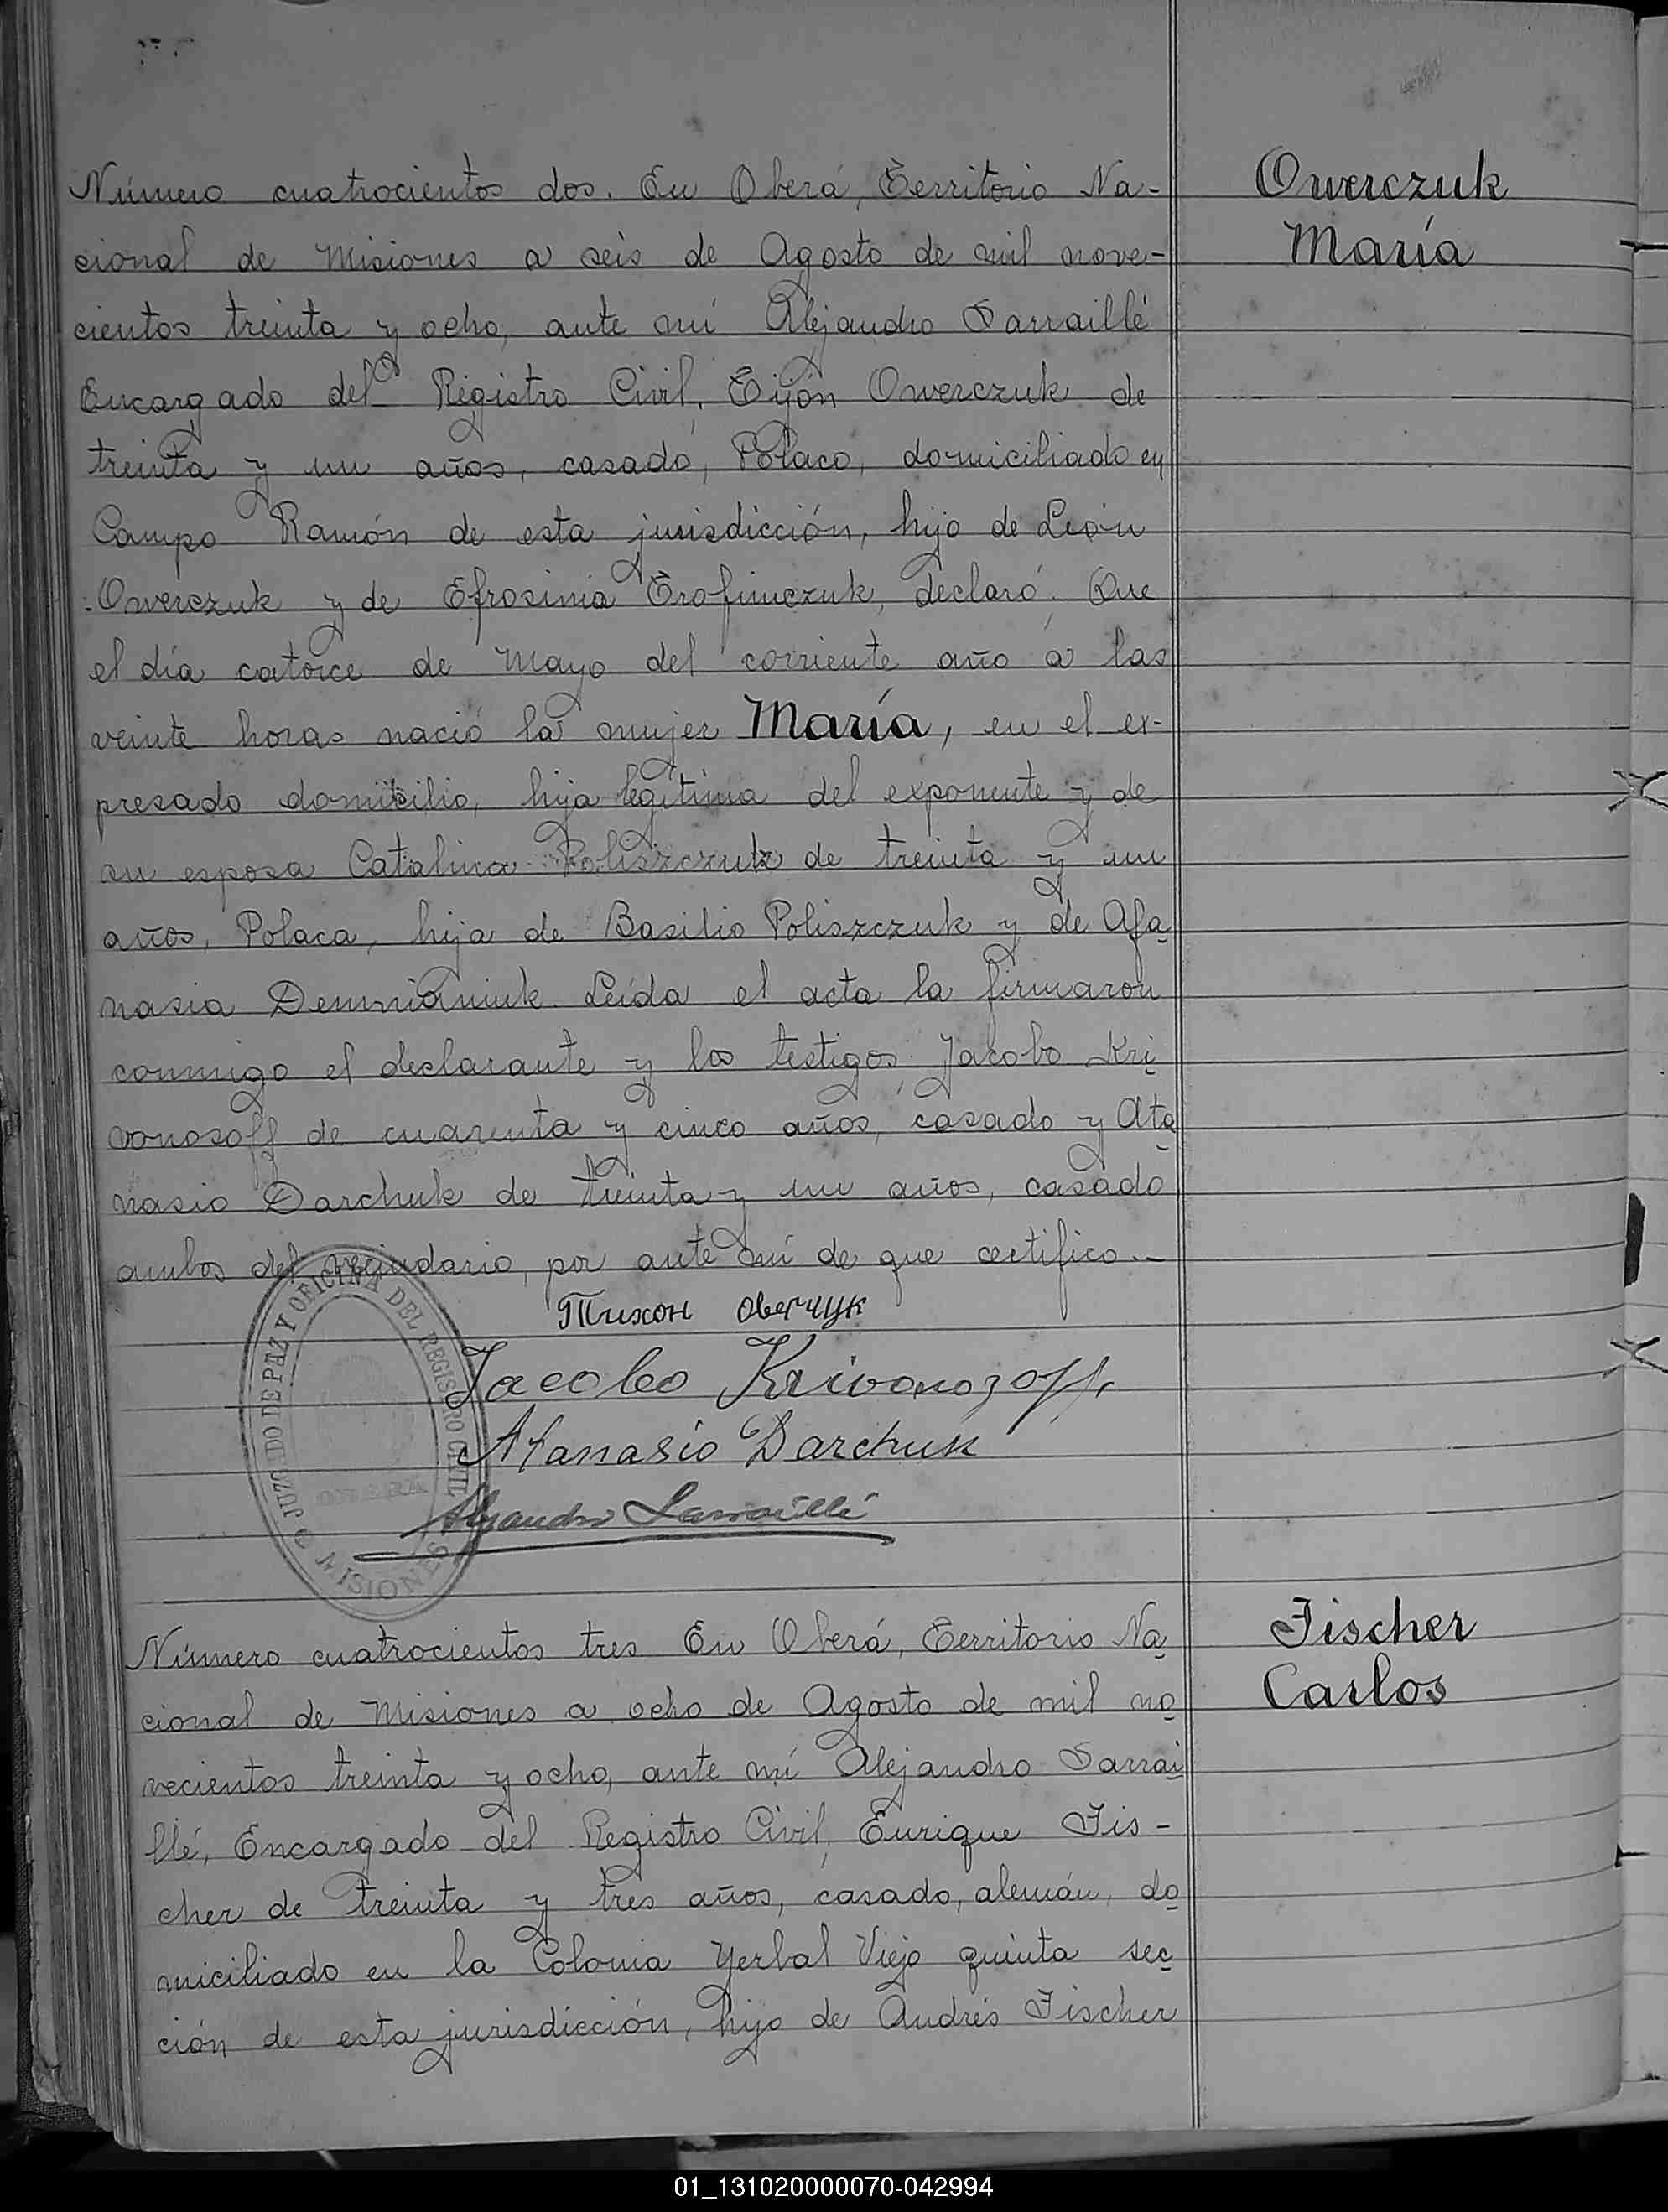 Owerczuk
María
Número cuatrocientos dos. En Oberá, Territorio Na-
cional de Misiones a seis de Agosto de mil nove-
cientos treinta y ocho, ante mí Alejandro Sarraillé
Encargado del Registro Civil, Tijón Owerczuk de
treinta y un años, casado, Polaco, domiciliado en
Campo Ramón de esta jurisdicción, hijo de León
Owerczuk y de Efrosinia Trofimczuk, declaró: Que
el día catorce de Mayo del corriente año a las
veinte horas nació la mujer María, en el ex-
presado domicilio, hija legítima del exponente y de
su esposa Catalina Poliszczuk de treinta y un
años, Polaca, hija de Basilio Poliszczuk y de Afa
nasia Demnianiuk. Leída el acta la firmaron
conmigo el declarante y los testigos: Jacobo Kri
vonosoff de cuarenta y cinco años, casado y Ata
nasio Darchuk de treinta y un años, casado
ambos del vecindario, por ante mí de que certifico.-
Тихон Оверчук
Jacobo Krivonozoff.
Afanasio Darchuk
Alejandro Sarraillé
JUZGADO DE PAZ Y OFICINA DEL REGISTRO CIVIL
OBERA
MISIONES
Fischer
Carlos
Número cuatrocientos tres En Oberá, Territorio Na
cional de Misiones a ocho de Agosto de mil no
vecientos treinta y ocho, ante mí Alejandro Sarrai
llé, Encargado del Registro Civil, Enrique Fis-
cher de treinta y tres años, casado, alemán, do
miciliado en la Colonia Yerbal Viejo quinta sec
ción de esta jurisdicción, hijo de Andrés Fischer
01_131020000070-042994